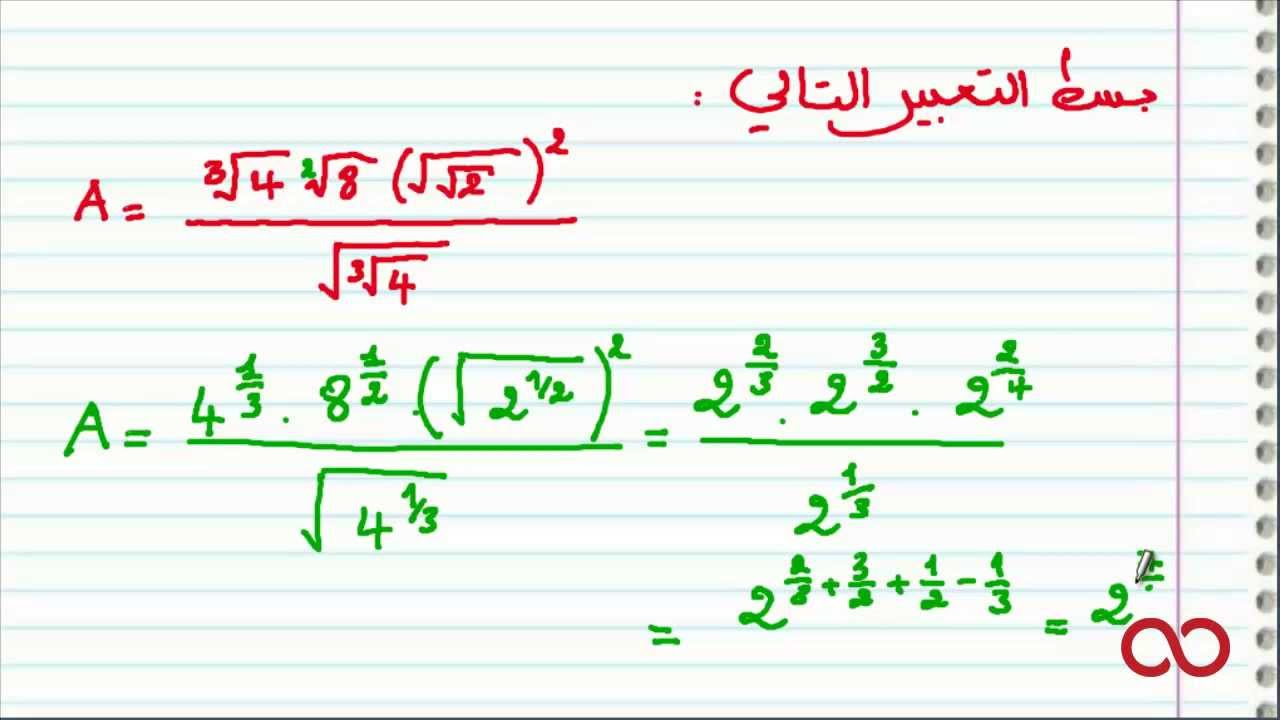 بسط التعبير التالي :
A = \frac{\sqrt[3]{4} \sqrt[2]{8} (\sqrt{\sqrt{2}})^2}{\sqrt{\sqrt[3]{4}}}
A = \frac{4^{\frac{1}{3}} . 8^{\frac{1}{2}} . (\sqrt{2^{1/2}})^2}{\sqrt{4^{1/3}}} = \frac{2^{\frac{2}{3}} . 2^{\frac{3}{2}} . 2^{\frac{2}{4}}}{2^{\frac{1}{3}}}
= 2^{\frac{2}{3} + \frac{3}{2} + \frac{1}{2} - \frac{1}{3}} = 2